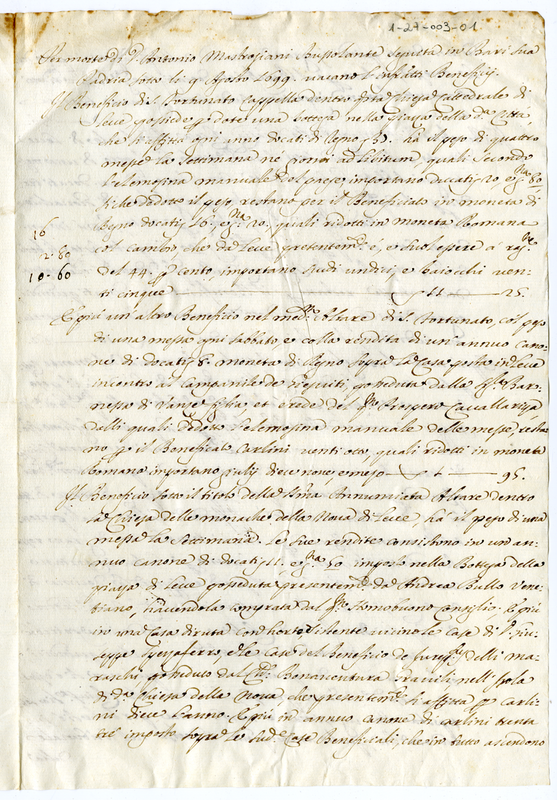 1-27-003-01
Per morte di D. Antonio Mastrogiani Bussolante seguita in Bari sua
Padria sotto li 9 Agosto 1699. vacano l'infratti Beneficij.
Il Beneficio di S. Fortunato Cappella dentro Chiesa Cattedrale di
Lecce possiede una bottega nella piazza della Città
che s'affitta ogni anno docati di Regno 37. hà il peso di quattro
messe la settimana ne giorni ad libitum, quali secondo
l'elemosina manuale del paese importano ducati 20, e
si che dedotto il peso, restano per il Beneficiato in moneta di
Regno docati 16. 20. quali ridotti in moneta Romana
col cambio, che da Lecce presentem.te è, e suol essere a
del 44. p cento importano scudi undici, e baiocchi ven-
ti cinque 11 25.
16
2-60
10-60
E più un altro Beneficio nel med.mo Altare di S. Fortunato, col peso
di una messa ogni sabbato, e colla rendita di un annuo cano-
ne di docati 5. moneta di Regno sopra le Case poste in Lecce
incontro al Campanile de Giesuiti, possedute dalla Bar-
nessa di figlia, et erede del Prospero Cavallerizza
dalli quali dedotto l'elemosina manuale delle messe, resta-
no p il Beneficiato Carlini venti otto, quali ridotti in moneta
Romana importano giulij diece nove, e mezo 95.
Il Beneficio sotto il titolo della SS.ma Annunciata Altare dentro
la Chiesa delle monache della Nova di Lecce, hà il peso di una
messa la settimana. Le sue rendite consistono in un an-
nuo canone di docati 11. e 50 imposto nella Bottega della
piazza di Lecce posseduta presentem.te da Andrea Bullo Vene-
tiano, havendola comprata dal Homobuono Consiglio. E più
in una Casa diruta con horto esistente vicino le Case di D. Giu-
seppe Spezzaferro, e le Case del Beneficio de delli ma-
raschi, posseduto dal Bonaventura nell'Isola
di d.a Chiesa della Nova che presentem.te s'affitta p Carli-
ni diece l'anno. E più in annuo canone di carlini trenta
trè imposto sopra le sud.e Case Beneficali, che in tutto ascendono